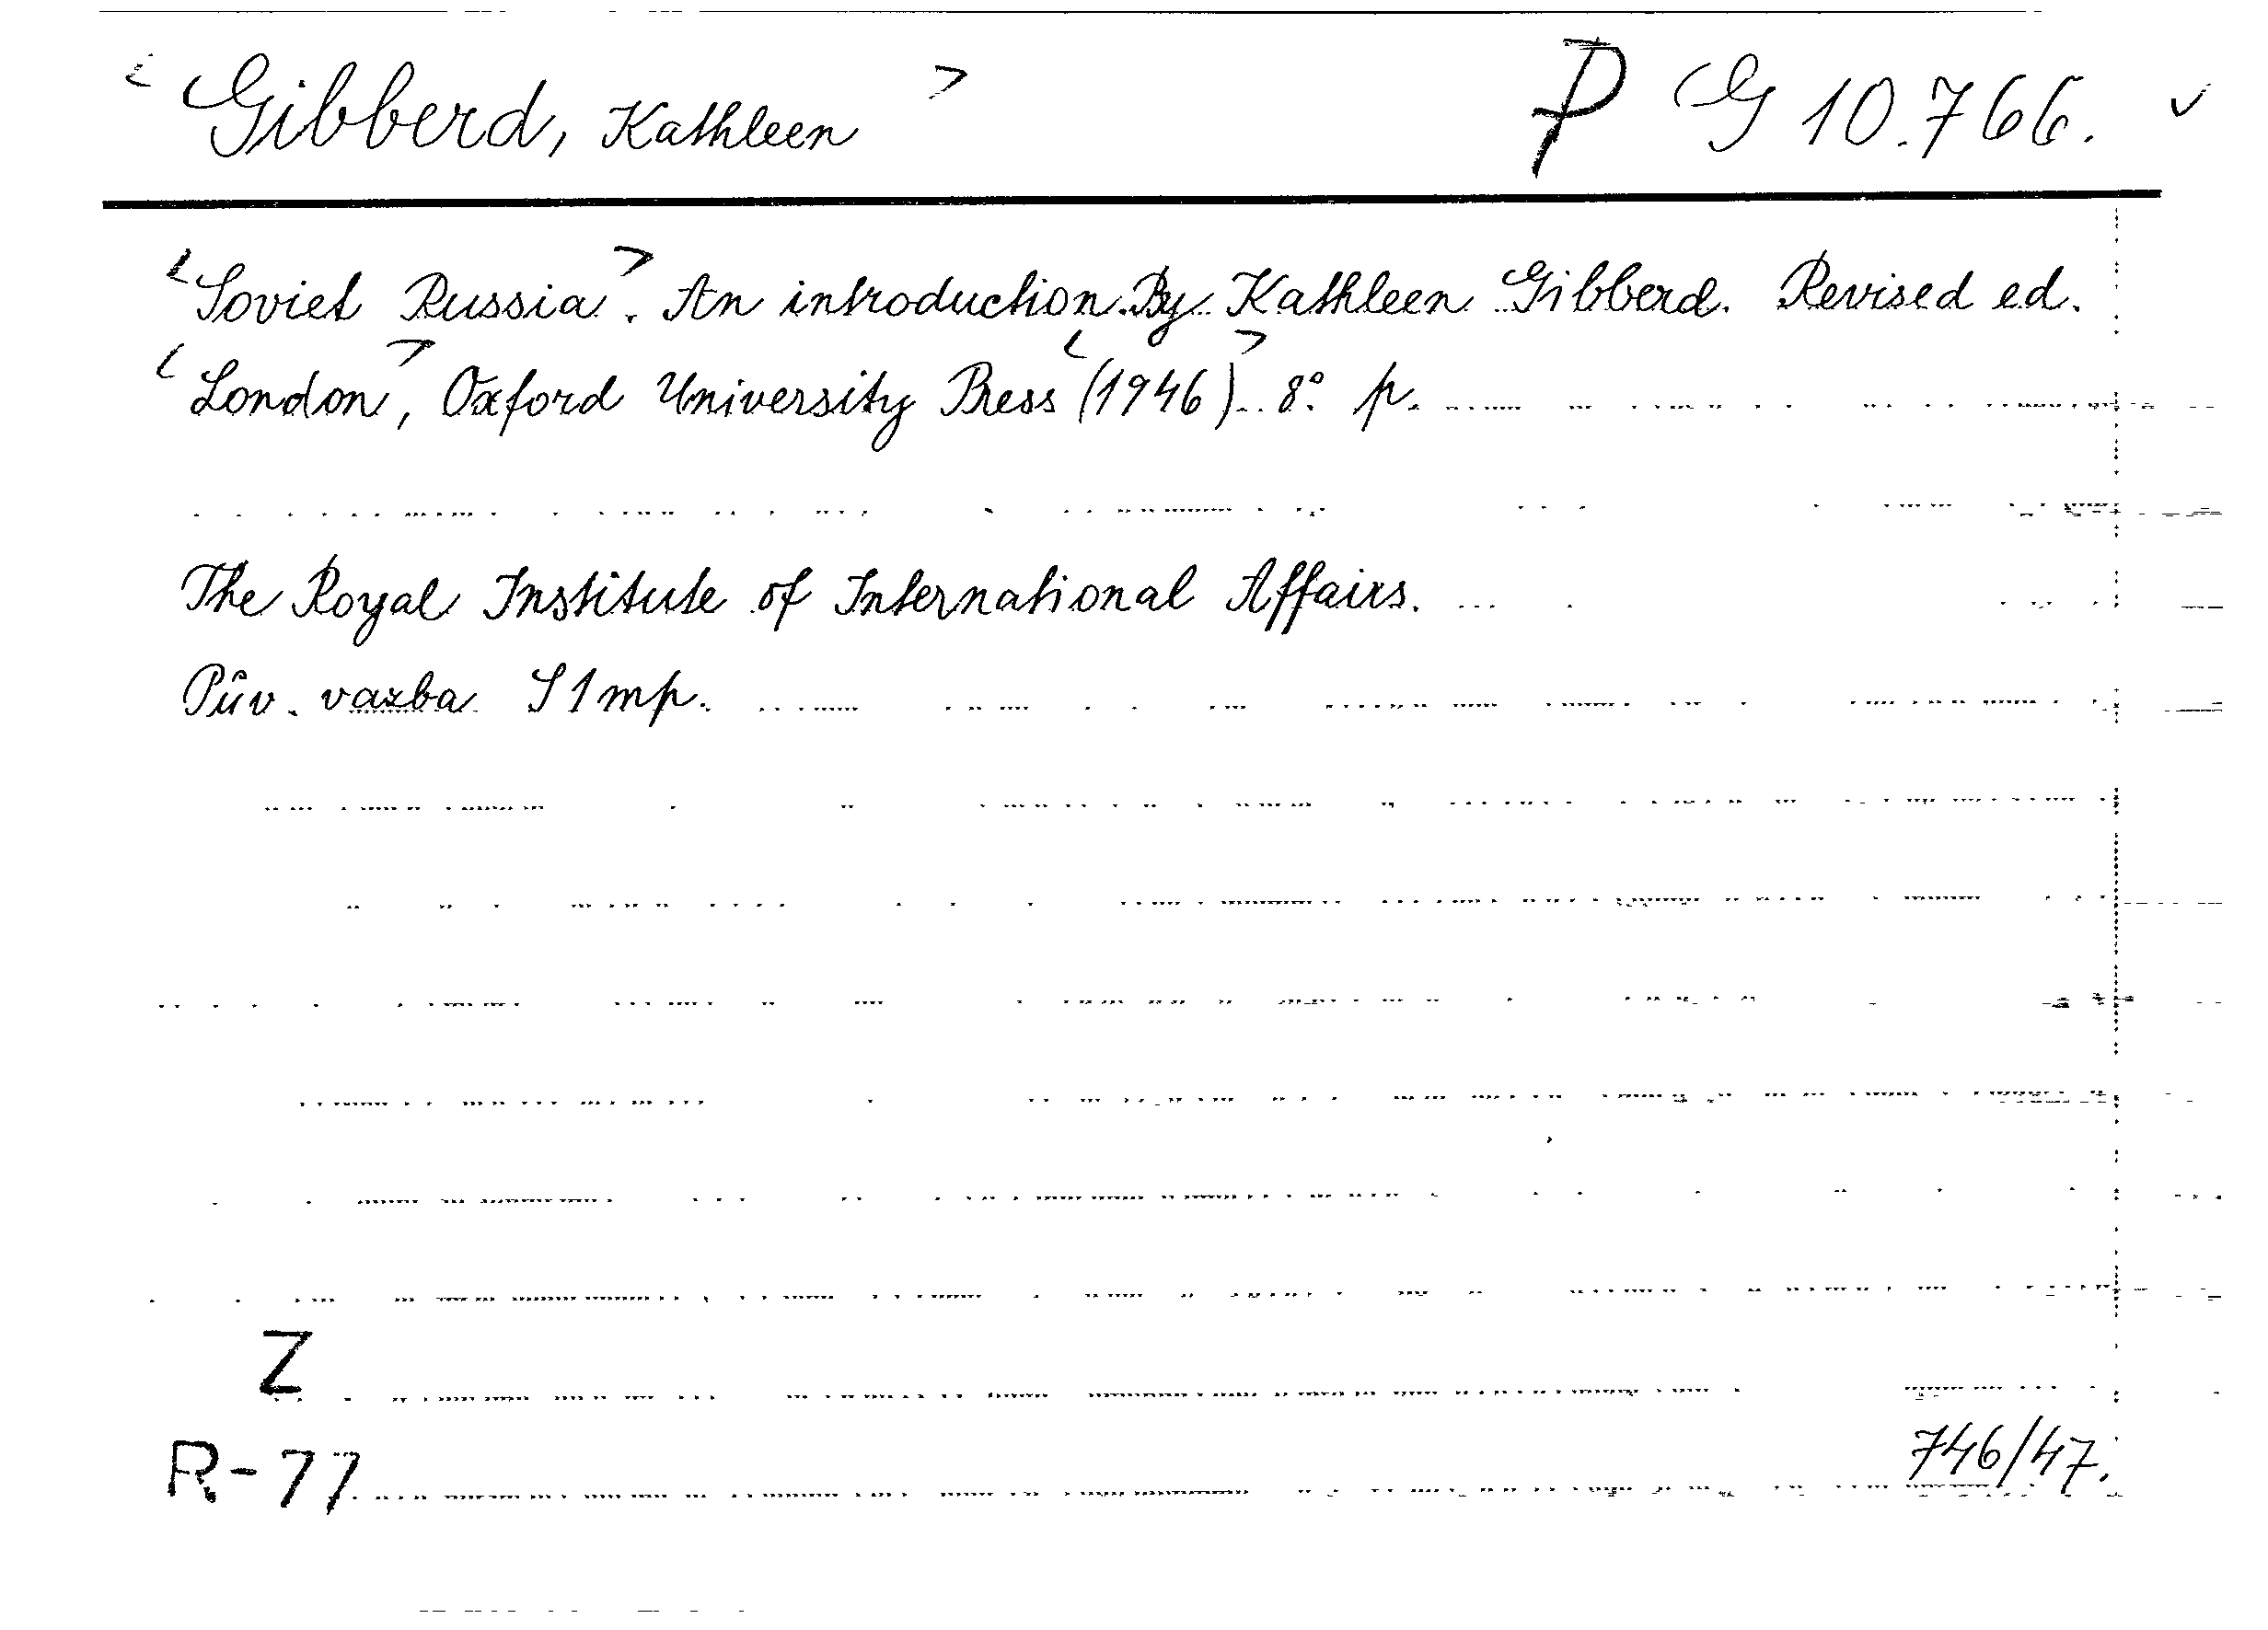 < Gibberd, Kathleen > P G 10.766. ✓
< Soviet Russia >. An introduction. By Kathleen Gibberd. Revised ed.
< London >, Oxford University Press < (1946) > 8° p.
The Royal Institute of International Affairs.
Pův. vazba S 1 mp.
Z
R-77 746/47.